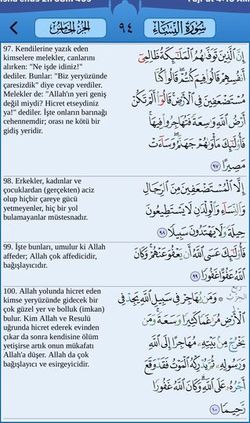 سُورَةُ النِّسَاءِ
٩٤
الجزء الخامس
97. Kendilerine yazık eden
kimselere melekler, canlarını
alırken: "Ne işde idiniz!"
dediler. Bunlar: "Biz yeryüzünde
çaresizdik" diye cevap verdiler.
Melekler de: "Allah'ın yeri geniş
değil miydi? Hicret etseydiniz
ya!" dediler. İşte onların barınağı
cehennemdir; orası ne kötü bir
gidiş yeridir.
اِنَّ الَّذٖينَ تَوَفّٰيهُمُ الْمَلٰٓئِكَةُ ظَالِمٖٓي
اَنْفُسِهِمْ قَالُوا فٖيمَ كُنْتُمْ قَالُوا كُنَّا
مُسْتَضْعَفٖينَ فِي الْاَرْضِ قَالُٓوا اَلَمْ تَكُنْ
اَرْضُ اللّٰهِ وَاسِعَةً فَتُهَاجِرُوا فٖيهَا
فَاُو۬لٰٓئِكَ مَأْوٰيهُمْ جَهَنَّمُ وَسَٓاءَتْ
مَصٖيرًا ﴿٩٧﴾
98. Erkekler, kadınlar ve
çocuklardan (gerçekten) aciz
olup hiçbir çareye gücü
yetmeyenler, hiç bir yol
bulamayanlar müstesnadır.
اِلَّا الْمُسْتَضْعَفٖينَ مِنَ الرِّجَالِ
وَالنِّسَٓاءِ وَالْوِلْدَانِ لَا يَسْتَطٖيعُونَ
حٖيلَةً وَلَا يَهْتَدُونَ سَبٖيلًا ﴿٩٨﴾
99. İşte bunları, umulur ki Allah
affeder; Allah çok affedicidir,
bağışlayıcıdır.
فَاُو۬لٰٓئِكَ عَسَى اللّٰهُ اَنْ يَعْفُوَ عَنْهُمْ وَكَانَ
اللّٰهُ عَفُوًّا غَفُورًا ﴿٩٩﴾
100. Allah yolunda hicret eden
kimse yeryüzünde gidecek bir
çok güzel yer ve bolluk (imkan)
bulur. Kim Allah ve Resulü
uğrunda hicret ederek evinden
çıkar da sonra kendisine ölüm
yetişirse artık onun mükafatı
Allah'a düşer. Allah da çok
bağışlayıcı ve esirgeyicidir.
وَمَنْ يُهَاجِرْ فٖي سَبٖيلِ اللّٰهِ يَجِدْ فِي
الْاَرْضِ مُرَاغَمًا كَثٖيرًا وَسَعَةً وَمَنْ
يَخْرُجْ مِنْ بَيْتِهٖ مُهَاجِرًا اِلَى اللّٰهِ
وَرَسُولِهٖ ثُمَّ يُدْرِكْهُ الْمَوْتُ فَقَدْ وَقَعَ
اَجْرُهُ عَلَى اللّٰهِ وَكَانَ اللّٰهُ غَفُورًا
رَحٖيمًا ﴿١٠٠﴾